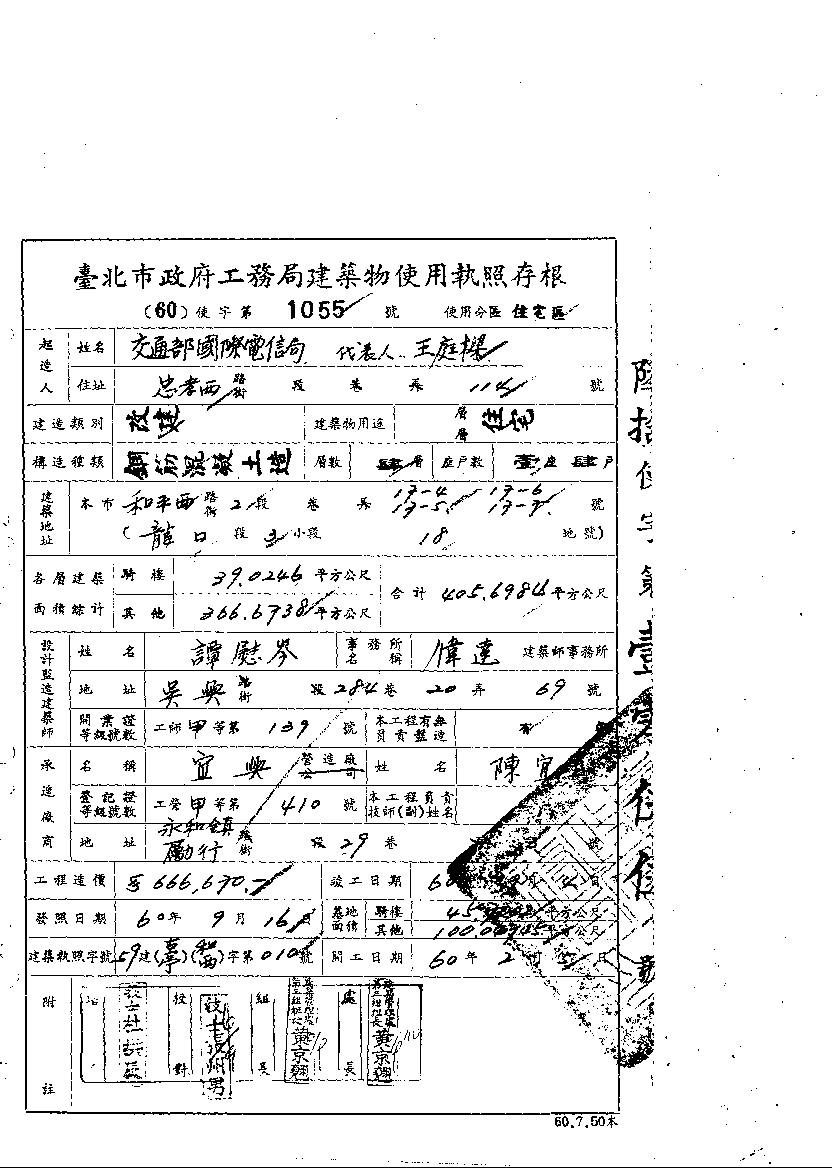 臺北市政府工務局建築物使用執照存根
(60)使字第 1055 號 使用分區 住宅區
起造人 姓名 交通部國際電信局 代表人 王庭樑
住址 忠孝西 路街 段 巷 弄 114 號
建造類別 改建 建築物用途 層層 住宅
構造種類 鋼筋混凝土造 層數 肆層 座戶數 壹座 肆戶
建築地址 本市 和平西 路街 2段 巷 弄 17-4 17-6 17-5 17-7 號
(龍口 段 3 小段 18 地號)
各層建築面積綜計 騎樓 39.0246 平方公尺 合計 405.6984 平方公尺
其他 366.6738 平方公尺
設計監造建築師 姓名 譚慰岑 事務所名稱 偉達 建築師事務所
地址 吳興 路街 段 284 巷 20 弄 69 號
開業證等級號數 工師 甲 等第 139 號 本工程有無負責監造 有
承造廠商 名稱 宜興 營造廠公司 姓名 陳宜
登記證等級號數 工營 甲 等第 410 號 本工程負責技師(副)姓名
地址 永和鎮勵行 路街 段 29 巷 號
工程造價 666,670.- 竣工日期 60
發照日期 60年 9月 16日 基地面積 騎樓 平方公尺
其他 平方公尺
建築執照字號 59建( )(和西)字第010號 開工日期 60年 2月 日
附註 校對 組長 黃京翔 處長 黃京翔
60.7.50本
陸拾使字第壹
號